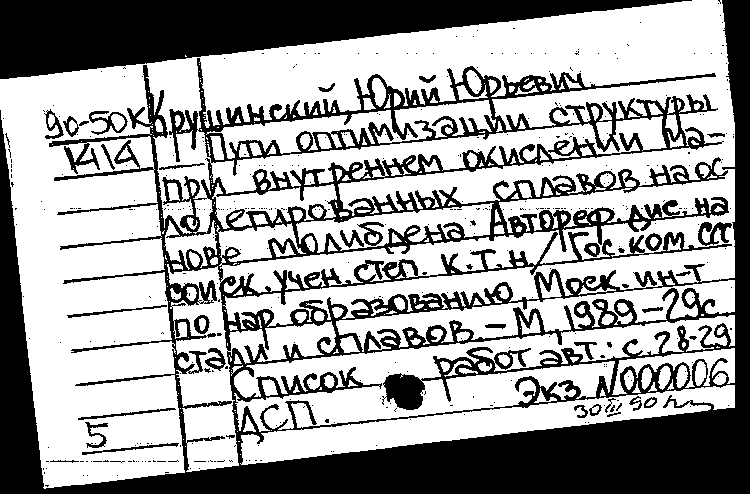 90-50К Крушинский, Юрий Юрьевич.
1414 Пути оптимизации структуры
при внутреннем окислении ма-
лолегированных сплавов на ос-
нове молибдена: Автореф. дис. на
соиск. учен. степ. к.т.н. / Гос. ком. СССР
по нар. образованию, Моск. ин-т
стали и сплавов. – М., 1989. – 29с
Список работ авт.: с. 28-29
ДСП. Экз. N000006
5